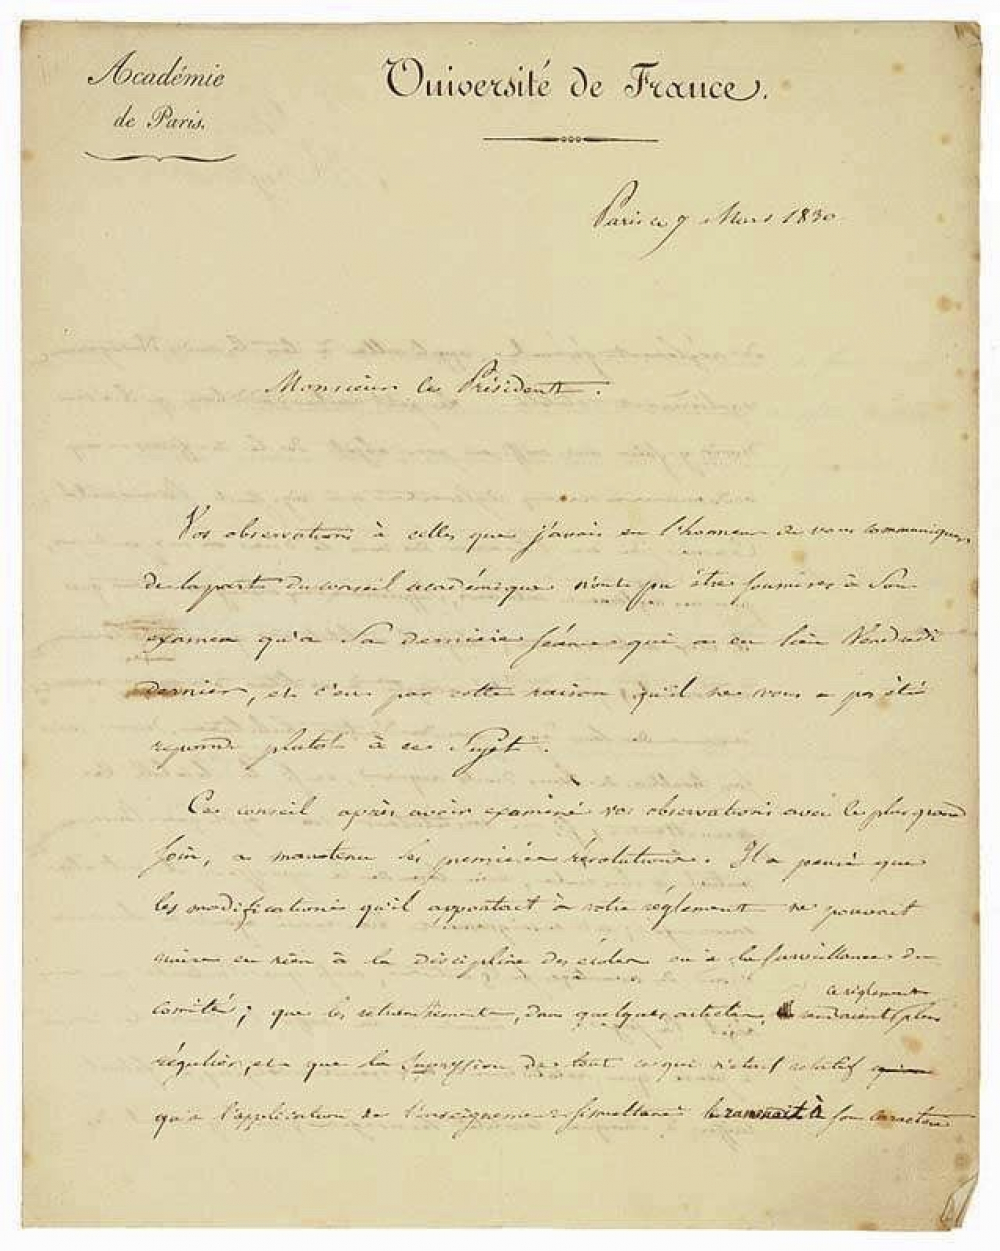 Académie
de Paris.
Université de France.
Paris ce 9 Mars 1830
Monsieur le Président.
Vos observations à celles que j'avais eu l'honneur de vous communiquer,
de la part du conseil académique n'ont pu être soumises à Son
examen qu'a Sa derniere Séance qui a eu lieu Vendredi
dernier, et c'est par cette raison qu'il ne vous a pas été
repondu plutot à ce Sujet.
Ce conseil après avoir examiné vos observations avec le plus grand
Soin, a maintenu ses premieres résolutions. Il a pensé que
les modifications qu'il apportait à votre réglement ne pouvait
nuire en rien à la discipline des écoles ou à la surveillance du
comité; que les retranchements, dans quelques articles, ce réglement rendaient plus
régulier, et que la Supression de tout ce qui n'etait relatif
qu'a l'application de l'enseignement simultané le ramenait à son caractere